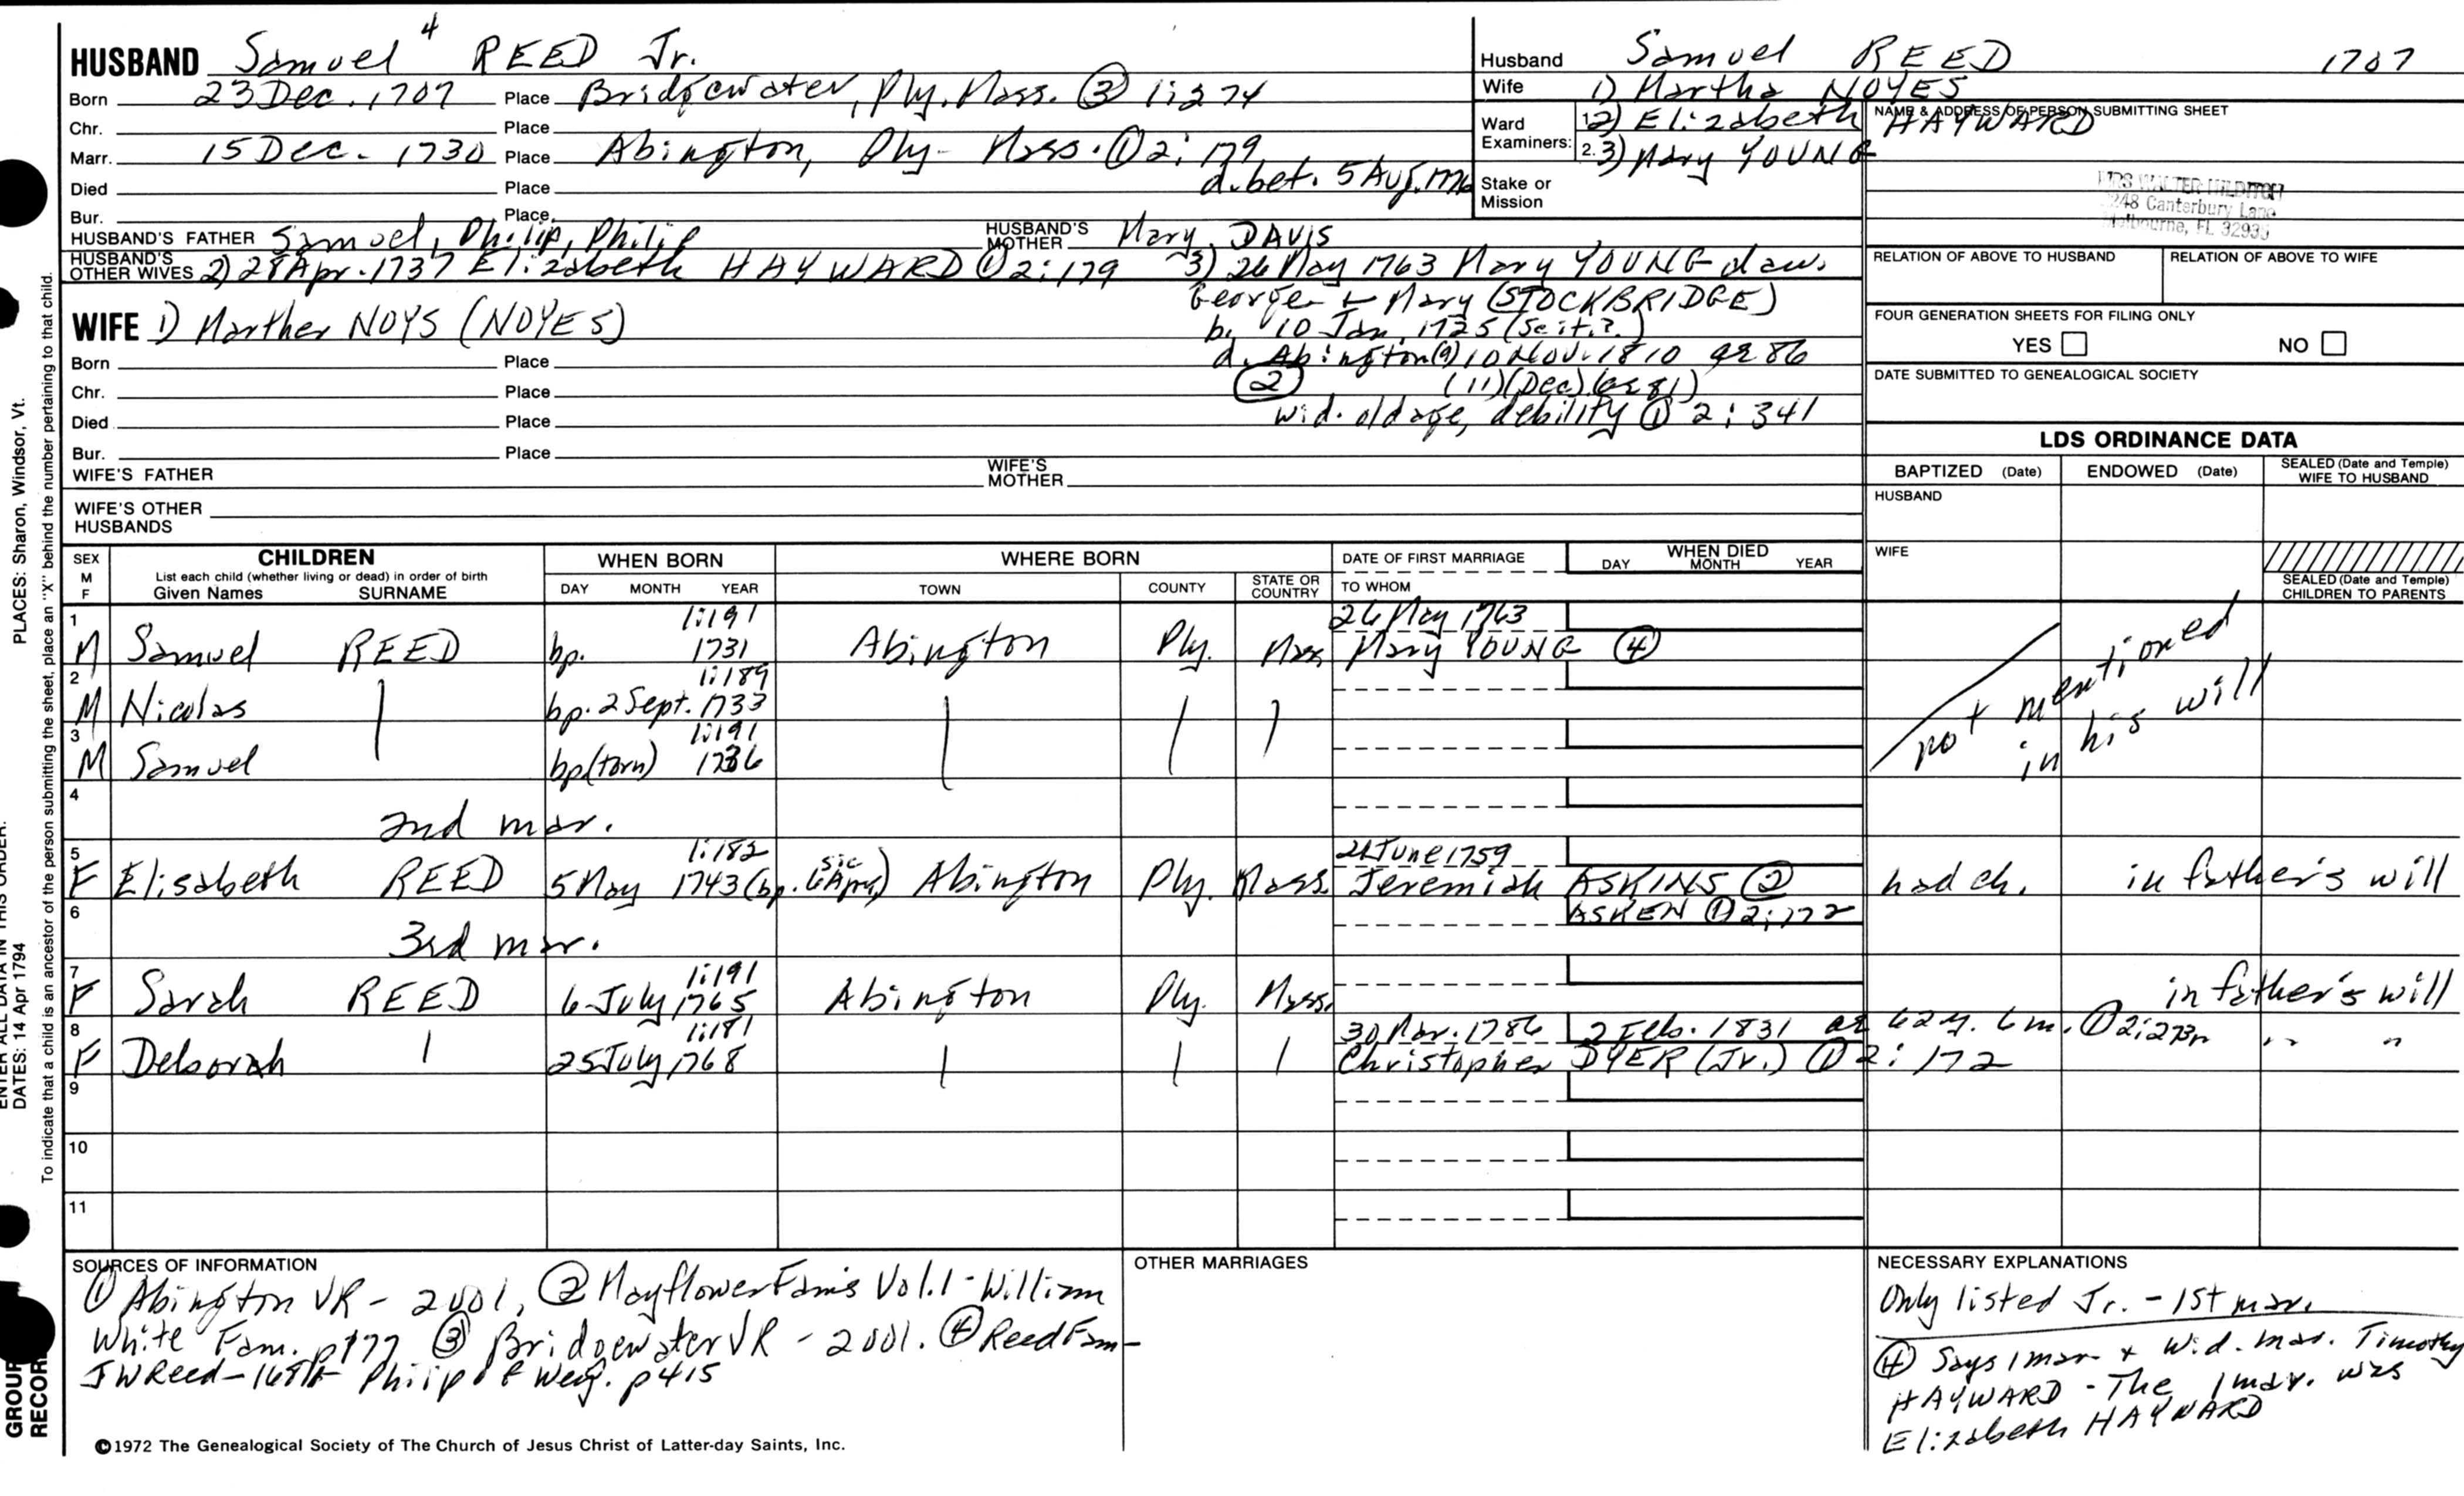 HUSBAND Samuel 4 REED Jr.
Born 23 Dec. 1707 Place Bridgewater, Ply. Mass. ③ 1:274
Chr. Place
Marr. 15 Dec. 1730 Place Abington, Ply. Mass. ① 2:179
Died Place d. bet. 5 Aug.
Bur. Place
HUSBAND'S FATHER Samuel, Philip, Philip HUSBAND'S MOTHER Mary DAVIS
HUSBAND'S OTHER WIVES 2) 28 Apr. 1737 Elizabeth HAYWARD ① 2:179 3) 26 May 1763 Mary YOUNG dau.
George + Mary (STOCKBRIDGE)
b. 10 Jan. 1725 (Scit.?)
d. Abington (9) 10 Nov. 1810 ae 86
② (11) (Dec) (ae 81)
wid. old age, debility ① 2:341
WIFE 1) Marther NOYS (NOYES)
Born Place
Chr. Place
Died Place
Bur. Place
WIFE'S FATHER WIFE'S MOTHER
WIFE'S OTHER HUSBANDS
Husband Samuel REED 1707
Wife 1) Martha NOYES
Ward Examiners: 1. 2) Elizabeth HAYWARD
2. 3) Mary YOUNG
Stake or Mission
NAME & ADDRESS OF PERSON SUBMITTING SHEET
MRS WALTER HILDITCH
248 Canterbury Lane
Melbourne, FL
RELATION OF ABOVE TO HUSBAND RELATION OF ABOVE TO WIFE
FOUR GENERATION SHEETS FOR FILING ONLY
YES NO
DATE SUBMITTED TO GENEALOGICAL SOCIETY
LDS ORDINANCE DATA
BAPTIZED (Date) ENDOWED (Date) SEALED (Date and Temple) WIFE TO HUSBAND
HUSBAND
WIFE
SEALED (Date and Temple) CHILDREN TO PARENTS
SEX M F
CHILDREN
List each child (whether living or dead) in order of birth
Given Names SURNAME
WHEN BORN
DAY MONTH YEAR
WHERE BORN
TOWN COUNTY STATE OR COUNTRY
DATE OF FIRST MARRIAGE
TO WHOM
WHEN DIED
DAY MONTH YEAR
1 1:191 26 May 1763
M Samuel REED bp. 1731 Abington Ply. Mass Mary YOUNG ④
2 1:189
M Nicolas bp. 2 Sept. 1733
3 1:191
M Samuel bp (torn) 1736
not mentioned
in his will
4
2nd mar.
5 1:182 sic 21 June 1759
F Elisabeth REED 5 May 1743 (bp. Apr.) Abington Ply. Mass. Jeremiah ASKINS ② had ch. in father's will
6 ASKEN ① 2:172
3rd mar.
7 1:191
F Sarah REED 6 July 1765 Abington Ply. Mass. in father's will
8 1:181 30 Mar. 1786 2 Feb. 1831 ae 62 y. 6 m. ① 2:273n
F Deborah 25 July 1768 Christopher DYER (Jr.) ① 2:172 " "
9
10
11
SOURCES OF INFORMATION
① Abington VR - 2 vol, ② Mayflower Fam's Vol.1 - William
White Fam. p177 ③ Bridgewater VR - 2 vol. ④ Reed Fam -
JW Reed - Philip of Wey. p415
OTHER MARRIAGES
NECESSARY EXPLANATIONS
Only listed Jr. - 1st mar.
④ Says 1 mar + wid. mar. Timothy
HAYWARD - The 1 mar. was
Elizabeth HAYWARD
©1972 The Genealogical Society of The Church of Jesus Christ of Latter-day Saints, Inc.
PLACES: Sharon, Windsor, Vt.
To indicate that a child is an ancestor of the person submitting the sheet, place an "X" behind the number pertaining to that child.
ENTER ALL DATA IN THIS ORDER:
DATES: 14 Apr 1794
GROUP
RECOR